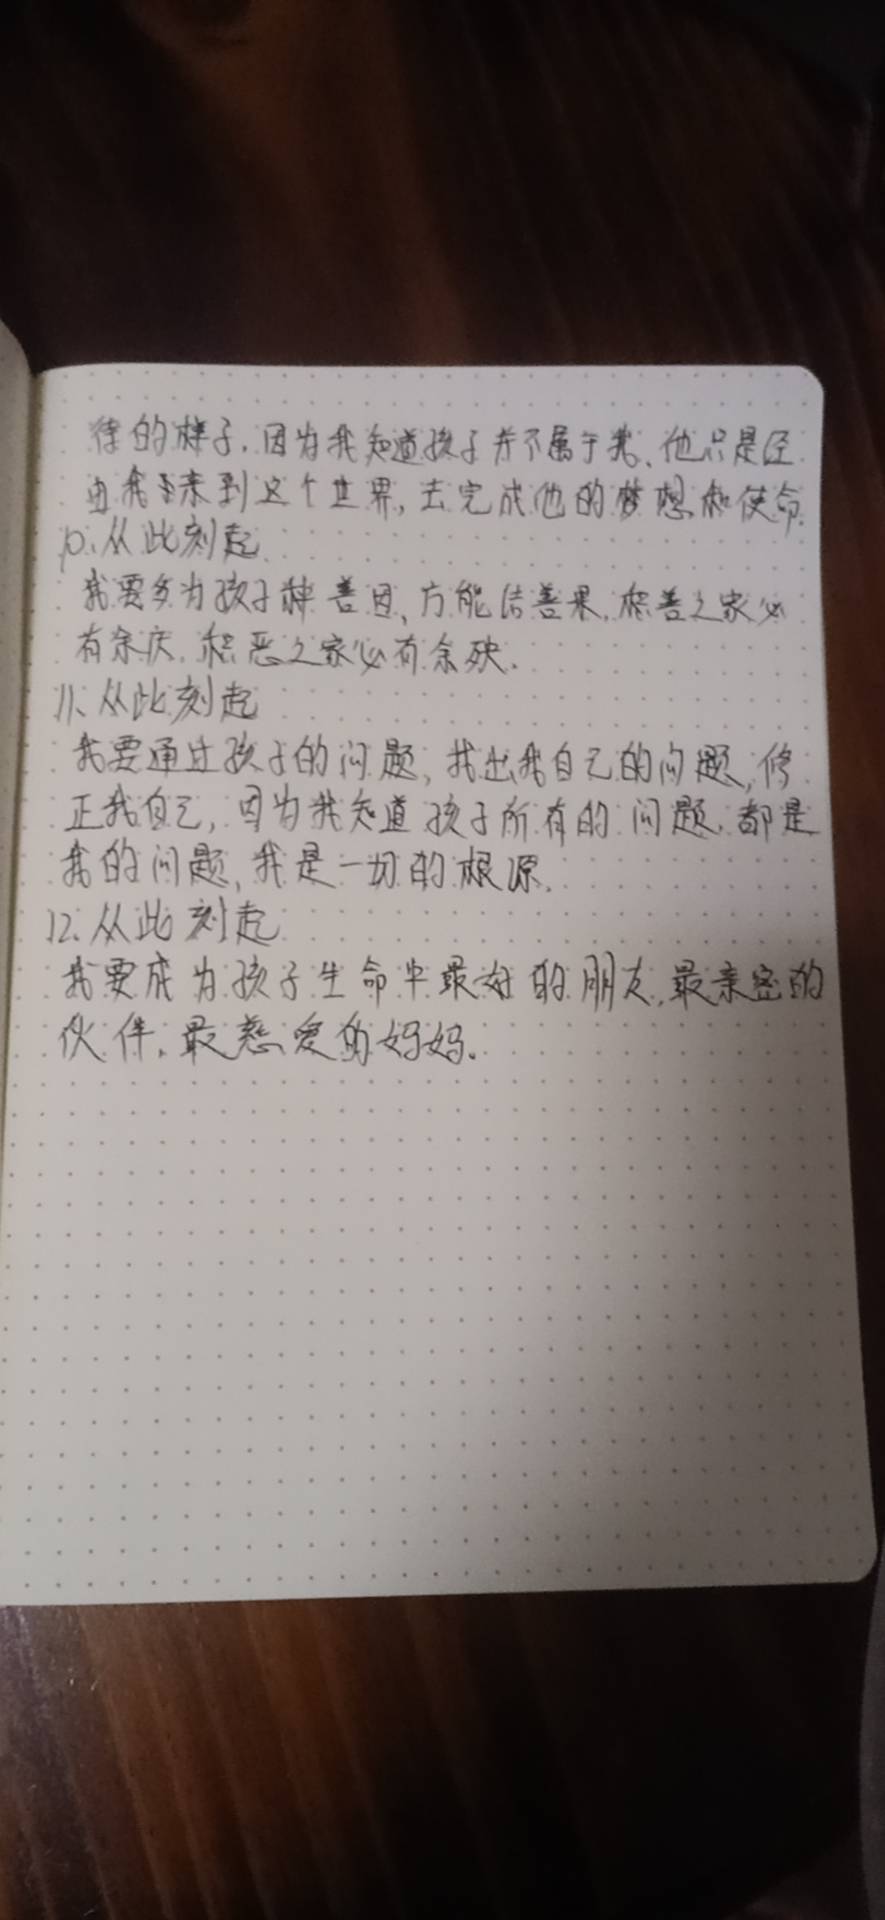 待的样子,因为我知道孩子并不属于我、他只是经
由我来到这个世界,去完成他的梦想和使命.
10、从此刻起
我要多为孩子种善因、方能结善果,积善之家必
有余庆,积恶之家必有余殃.
11、从此刻起
我要通过孩子的问题,找出我自己的问题,修
正我自己,因为我知道孩子所有的问题,都是
我的问题,我是一切的根源.
12.从此刻起
我要成为孩子生命中最好的朋友,最亲密的
伙伴,最慈爱的妈妈.